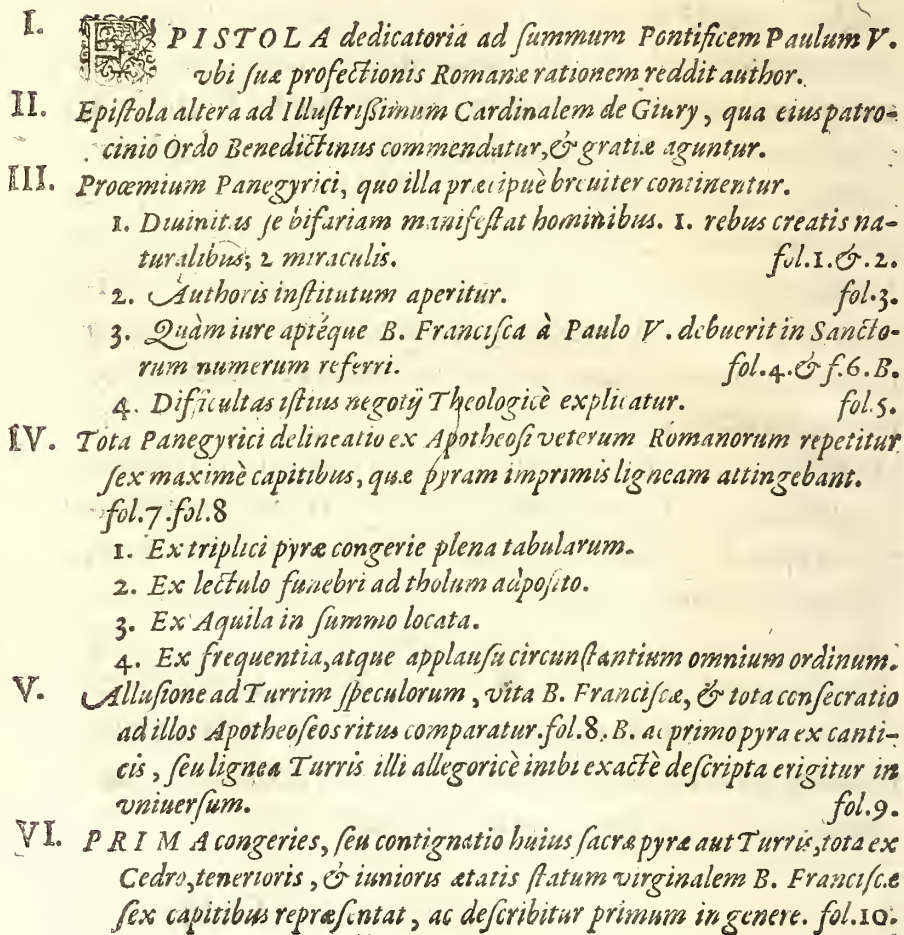 I. EPISTOLA dedicatoria ad ſummum Pontificem Paulum V.
vbi ſuæ profectionis Romanæ rationem reddit author.
II. Epiſtola altera ad Illuſtriſsimum Cardinalem de Giury, qua eius patro-
cinio Ordo Benedictinus commendatur, & gratiæ aguntur.
III. Proœmium Panegyrici, quo illa præcipuè breuiter continentur.
1. Diuinitas ſe bifariam manifeſtat hominibus. 1. rebus creatis na-
turalibus; 2 miraculis. fol.1.&.2.
2. Authoris inſtitutum aperitur. fol.3.
3. Quàm iure aptéque B. Franciſca à Paulo V. debuerit in Sancto-
rum numerum referri. fol.4.& f.6.B.
4. Difficultas iſtius negotij Theologicè explicatur. fol.5.
IV. Tota Panegyrici delineatio ex Apotheoſi veterum Romanorum repetitur
ſex maximè capitibus, quæ pyram imprimis ligneam attingebant.
fol.7.fol.8
1. Ex triplici pyræ congerie plena tabularum.
2. Ex lectulo funebri ad tholum adpoſito.
3. Ex Aquila in ſummo locata.
4. Ex frequentia, atque applauſu circunſtantium omnium ordinum.
V. Alluſione ad Turrim ſpeculorum, vita B. Franciſcæ, & tota conſecratio
ad illos Apotheoſeos ritus comparatur. fol.8.B. ac primo pyra ex canti-
cis, ſeu lignea Turris illi allegoricè inibi exactè deſcripta erigitur in
vniuerſum. fol.9.
VI. PRIMA congeries, ſeu contignatio huius ſacræ pyræ aut Turris, tota ex
Cedro, tenerioris, & iunioris ætatis ſtatum virginalem B. Franciſcæ
ſex capitibus repræſentat, ac deſcribitur primum in genere. fol.10.